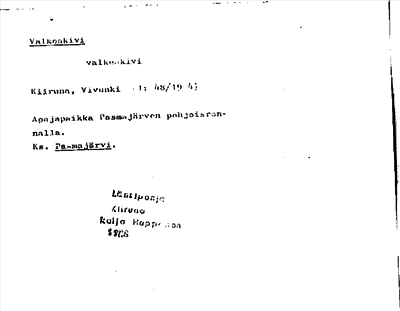 Valkeakivi
valkeakivi
Kiiruna, Vivunki 1: 48/19 4)
Apajapaikka Pasmajärven pohjoisran-
nalla.
Ks. Pasmajärvi.
Länsipohja
Kiiruna
Raija